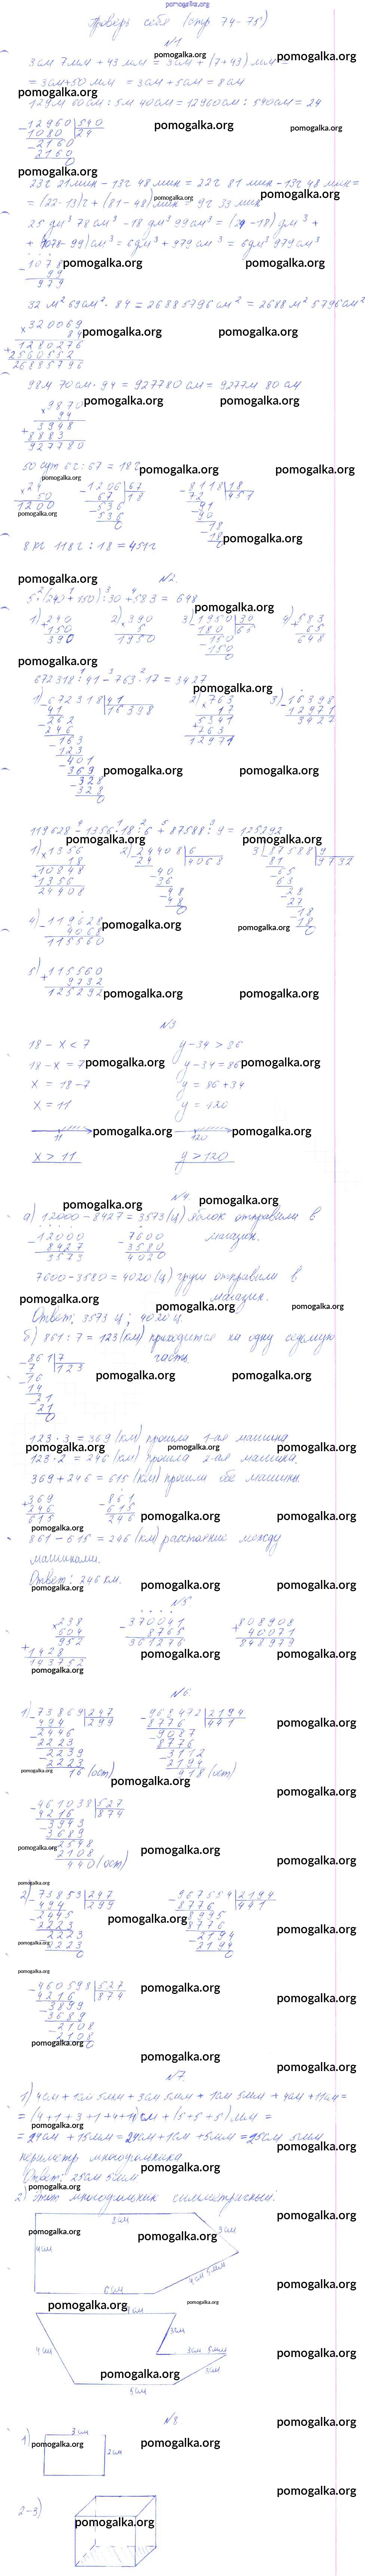 Проверь себя (стр 74-75)
№1
3см 7мм + 43 мм = 3см + (7+43) мм =
= 3см+50 мм = 3см + 5см = 8см
129м 60см : 5м 40см = 12960см : 540см = 24
12960 540
1080 24
2160
2160
0
23ч 21мин - 13ч 48мин = 22ч 81 мин - 13ч 48мин =
= (22-13)ч + (81-48)мин = 9ч 33 мин
+ (1078-99) см³ = 6дм³ + 979 см³ = 6дм³ 979см³
1078
99
979
32 м² 69см² · 84 = 26885796см² = 2688м² 5796см²
320069
84
1280276
2560552
26885796
98м 70см · 94 = 927780 см = 9277м 80 см
9870
94
3948
8883
927780
50 сут 6ч : 67 = 18ч
24
50
1200
1206 67
67 18
536
536
0
8118 18
72 451
91
90
18
18
0
8 кг 118г : 18 = 451г
№2.
5·(240+150):30+583 = 648
1) 240
150
390
2) 390
5
1950
3) 1950 30
180 65
150
150
0
4) 583
65
648
672318 : 41 - 763 · 17 = 3427
1) 672318 41
41
262
246
163
123
401
369
328
328
0
2) 763
17
5341
763
12971
3) 16398
12971
3427
119628 - 1356 · 18 : 6 + 87588 : 9 = 125292
1) 1356
18
10848
1356
24408
2) 24408 6
24 4068
40
36
48
48
0
3) 87588 9
81 9732
65
63
28
27
18
18
0
4) 119628
4068
115560
5) 115560
9732
125292
№3
18 - x < 7 y-34 > 86
18 - x = 7 y-34=86
x = 18-7 y = 86+34
x = 11 y = 120
11 120
x > 11 y >120
№4.
а) 12000-8427 = 3573(ц) яблок отправили в
магазин.
12000
8427
3573
7600
3580
4020
7600-3580 = 4020 (ц) груш отправили в
магазин.
Ответ: 3573 ц; 4020 ц.
б) 861 : 7 = 123 (км) приходится на одну седьмую
часть.
861 7
7 123
16
14
21
21
0
123 · 3 = 369 (км) прошла 1-ая машина
123 · 2 = 246 (км) прошла 2-ая машина.
369 + 246 = 615 (км) прошли обе машины.
369
246
615
861
615
246
861 - 615 = 246 (км) расстояние между
машинами.
Ответ: 246 км.
№5
238
604
952
1428
143752
370041
8765
361276
808908
40071
848979
№6.
1) 73869 247
494 299
2446
2223
2239
2223
16 (ост)
968472 2194
8776 441
9087
8776
3112
2194
918 (ост)
461038 527
4216 874
3943
3689
2548
2108
440 (ост)
2) 73853 247
494 299
2445
2223
2223
2223
0
967554 2194
8776 441
8995
8776
2194
2194
0
460598 527
4216 874
3899
3689
2108
2108
0
№7.
= (4+1+3+1+4+11)см + (5+5+5) мм =
= 24см + 15мм = 24см+1см +5мм = 25см 5мм
периметр многоугольника
Ответ: 25см 5мм
2) Этот многоугольник симметричный.
8см
3см
4см
4см 5мм
6см
4см
3см
4см
3см 5мм
3см
5см
№8
1)
3 см
2см
2-3)
pomogalka.org